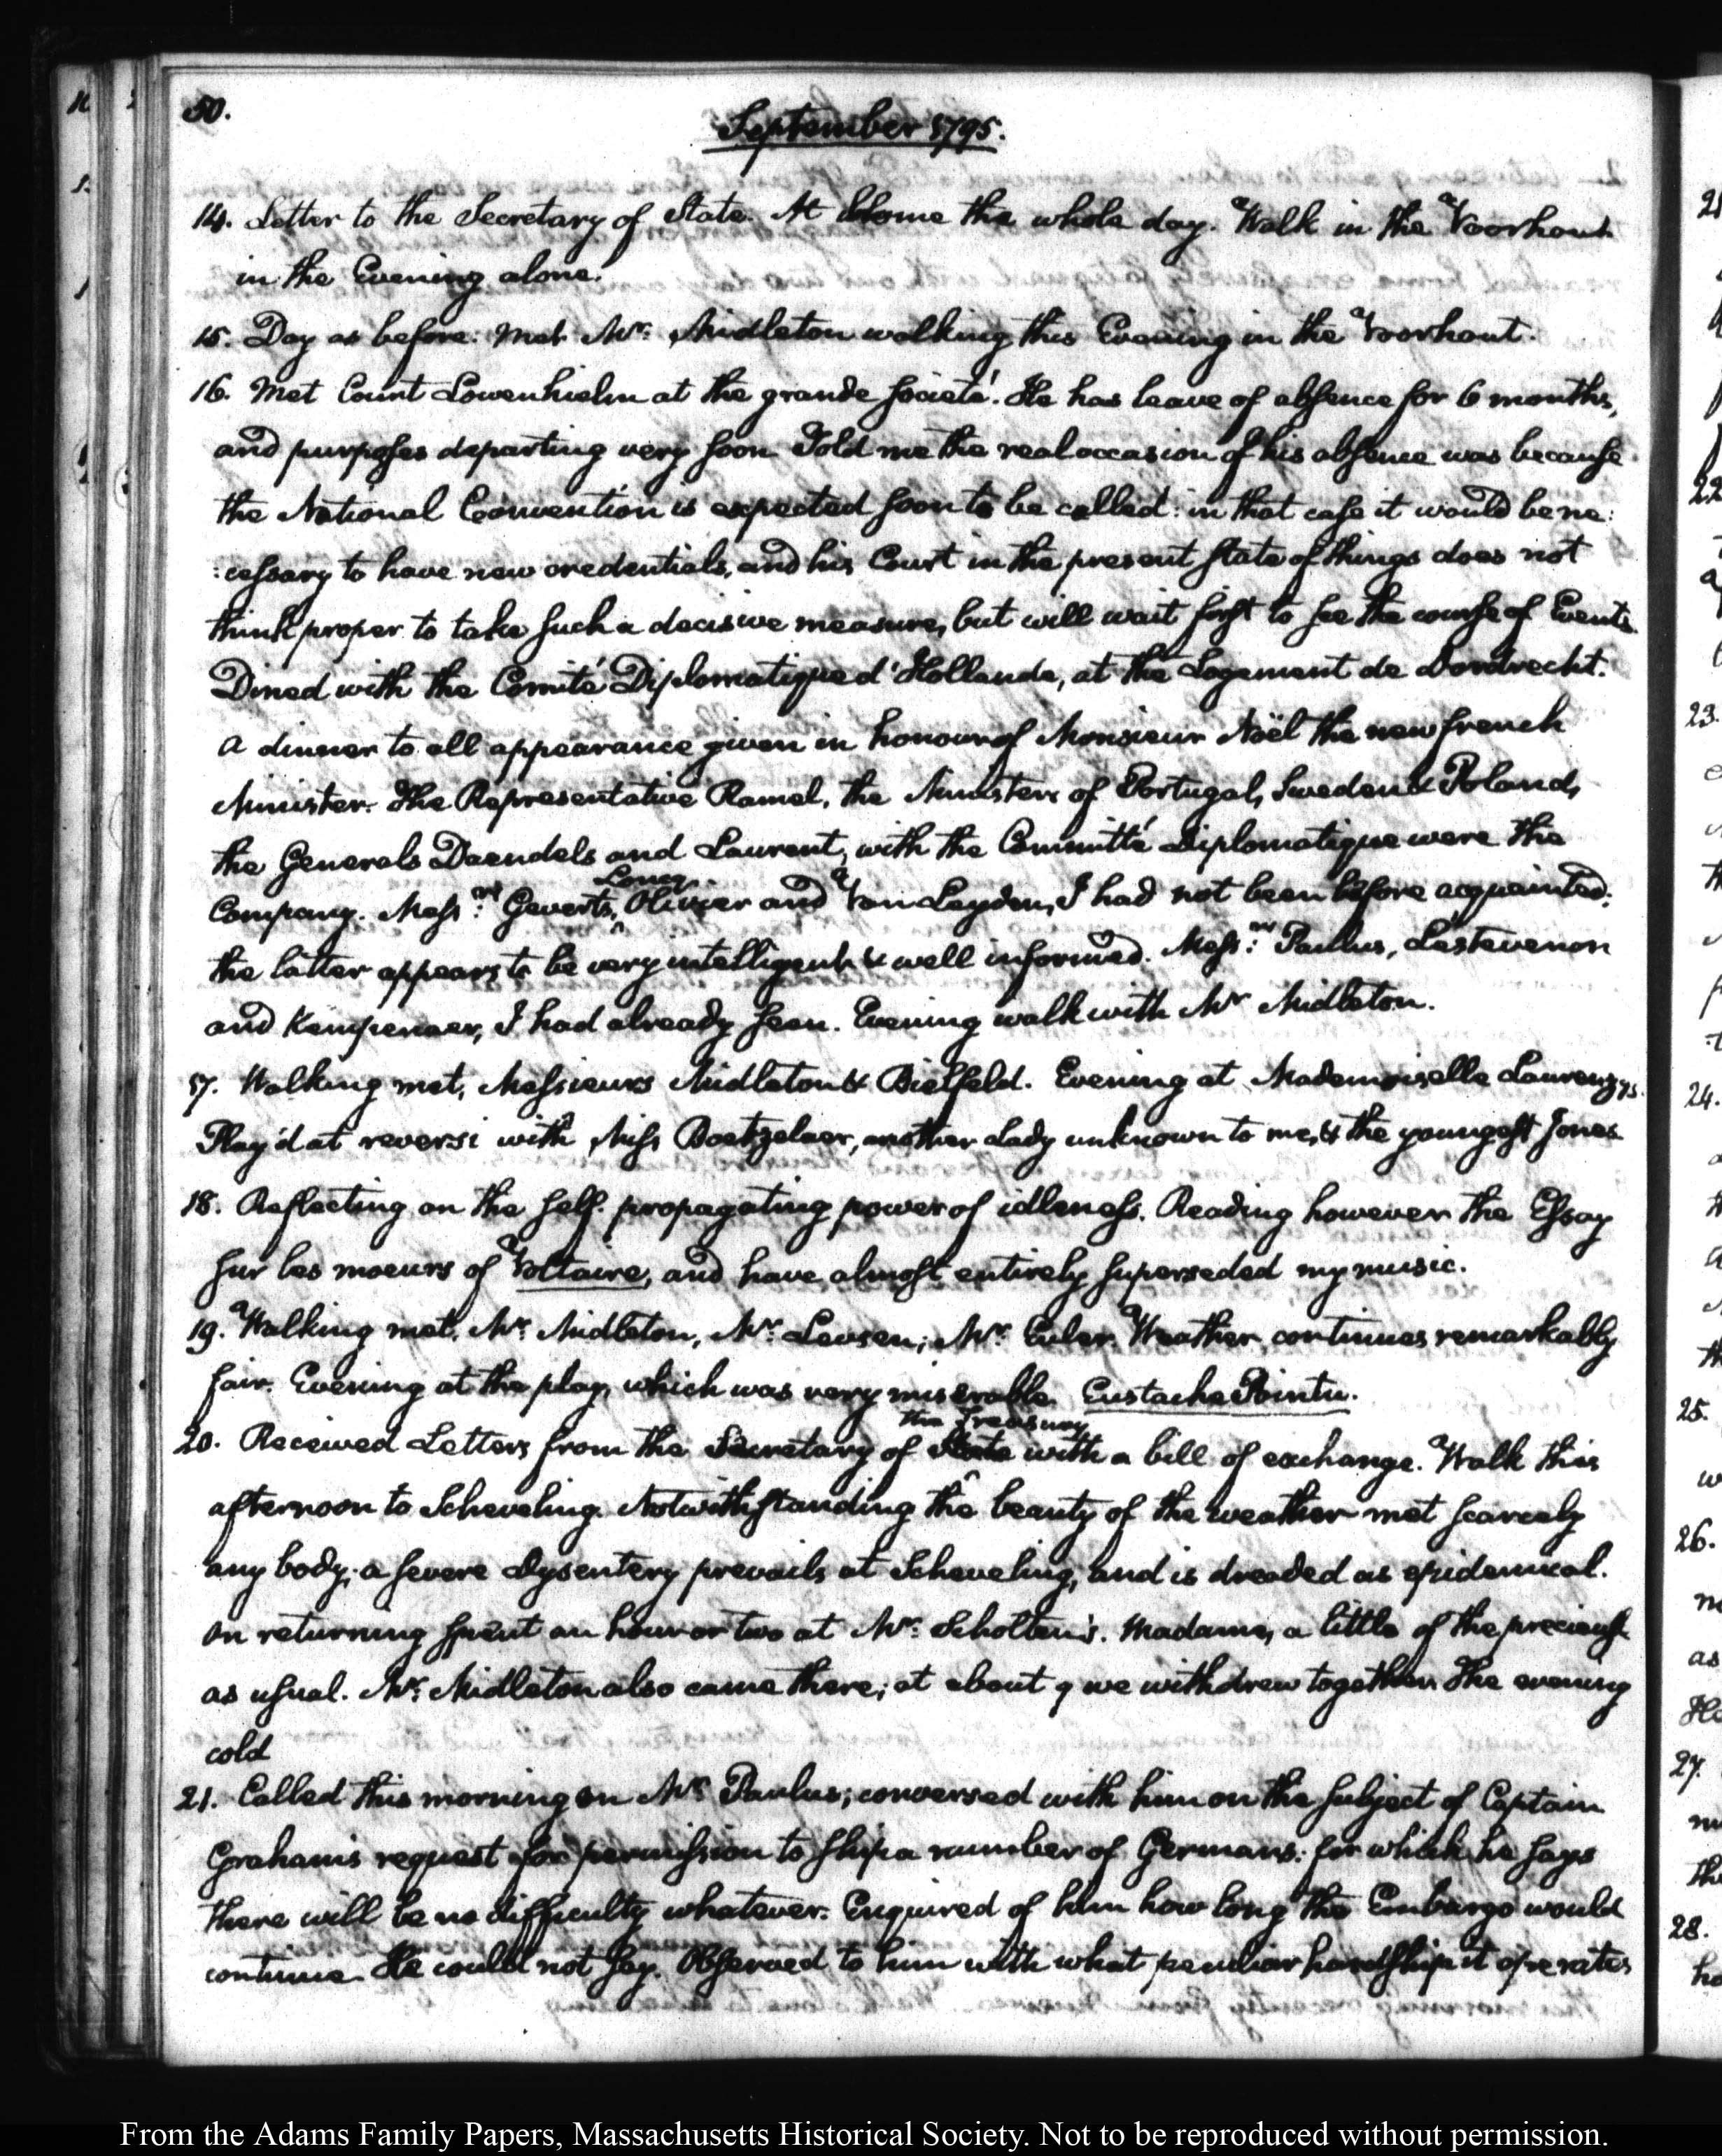 50.
September 1795.
14. Letter to the Secretary of State. At Home the whole day. Walk in the Voorhout
in the Evening alone.
15. Day as before: met Mr: Midleton walking this Evening in the Voorhout.
16. Met Count Lowenhielm at the grande societé. He has leave of absence for 6 months,
and purposes departing very soon Told me the real occasion of his absence was because
the National Convention is expected soon to be called: in that case it would be ne:
:cessary to have new credentials, and his Court in the present state of things does not
think proper to take such a decisive measure, but will wait first to see the course of Events.
Dined with the Comité Diplomatique d'Hollande, at the Logement de Dordrecht.
A dinner to all appearance given in honour of Monsieur Noël the new french
Minister. The Representative Ramel, the Ministers of Portugal, Sweden & Poland,
the Generals Daendels and Laurent, with the Committé Diplomatique were the
Company. Messrs: Geverts, Loncq. Olivier and Van Leyden, I had not been before acquainted:
the latter appears to be very intelligent & well informed. Messrs: Paulus, Lestevenon
and Kempenaer, I had already seen. Evening walk with Mr Midleton.
17. Walking met, Messieurs Midleton & Bielfeld. Evening at Mademoiselle Laurenzys.
Play'd at reversi with Miss Boetzelaer, another Lady unknown to me, & the youngest Jones
18. Reflecting on the self-propagating power of idleness. Reading however the Essay
sur les moeurs of Voltaire, and have almost entirely superseded my music.
19. Walking met, Mr: Midleton, Mr: Levsen; Mr: Euler. Weather continues remarkably
fair. Evening at the play, which was very miserable. Eustache Pointu.
20. Received Letters from the Secretary of State the Treasury with a bill of exchange. Walk this
afternoon to Scheveling. Notwithstanding the beauty of the weather met scarcely
any body; a severe dysentery prevails at Scheveling, and is dreaded as epidemical.
On returning spent an hour or two at Mr: Scholten's. Madame, a little of the precieuse
as usual. Mr: Midleton also came there; at about 9 we withdrew together. The evening
cold
21. Called this morning on Mr: Paulus; conversed with him on the subject of Captain
Graham's request for permission to ship a number of Germans: for which he says
there will be no difficulty whatever. Enquired of him how long the Embargo would
continue He could not say. Observed to him with what peculiar hardship it operates
From the Adams Family Papers, Massachusetts Historical Society. Not to be reproduced without permission.